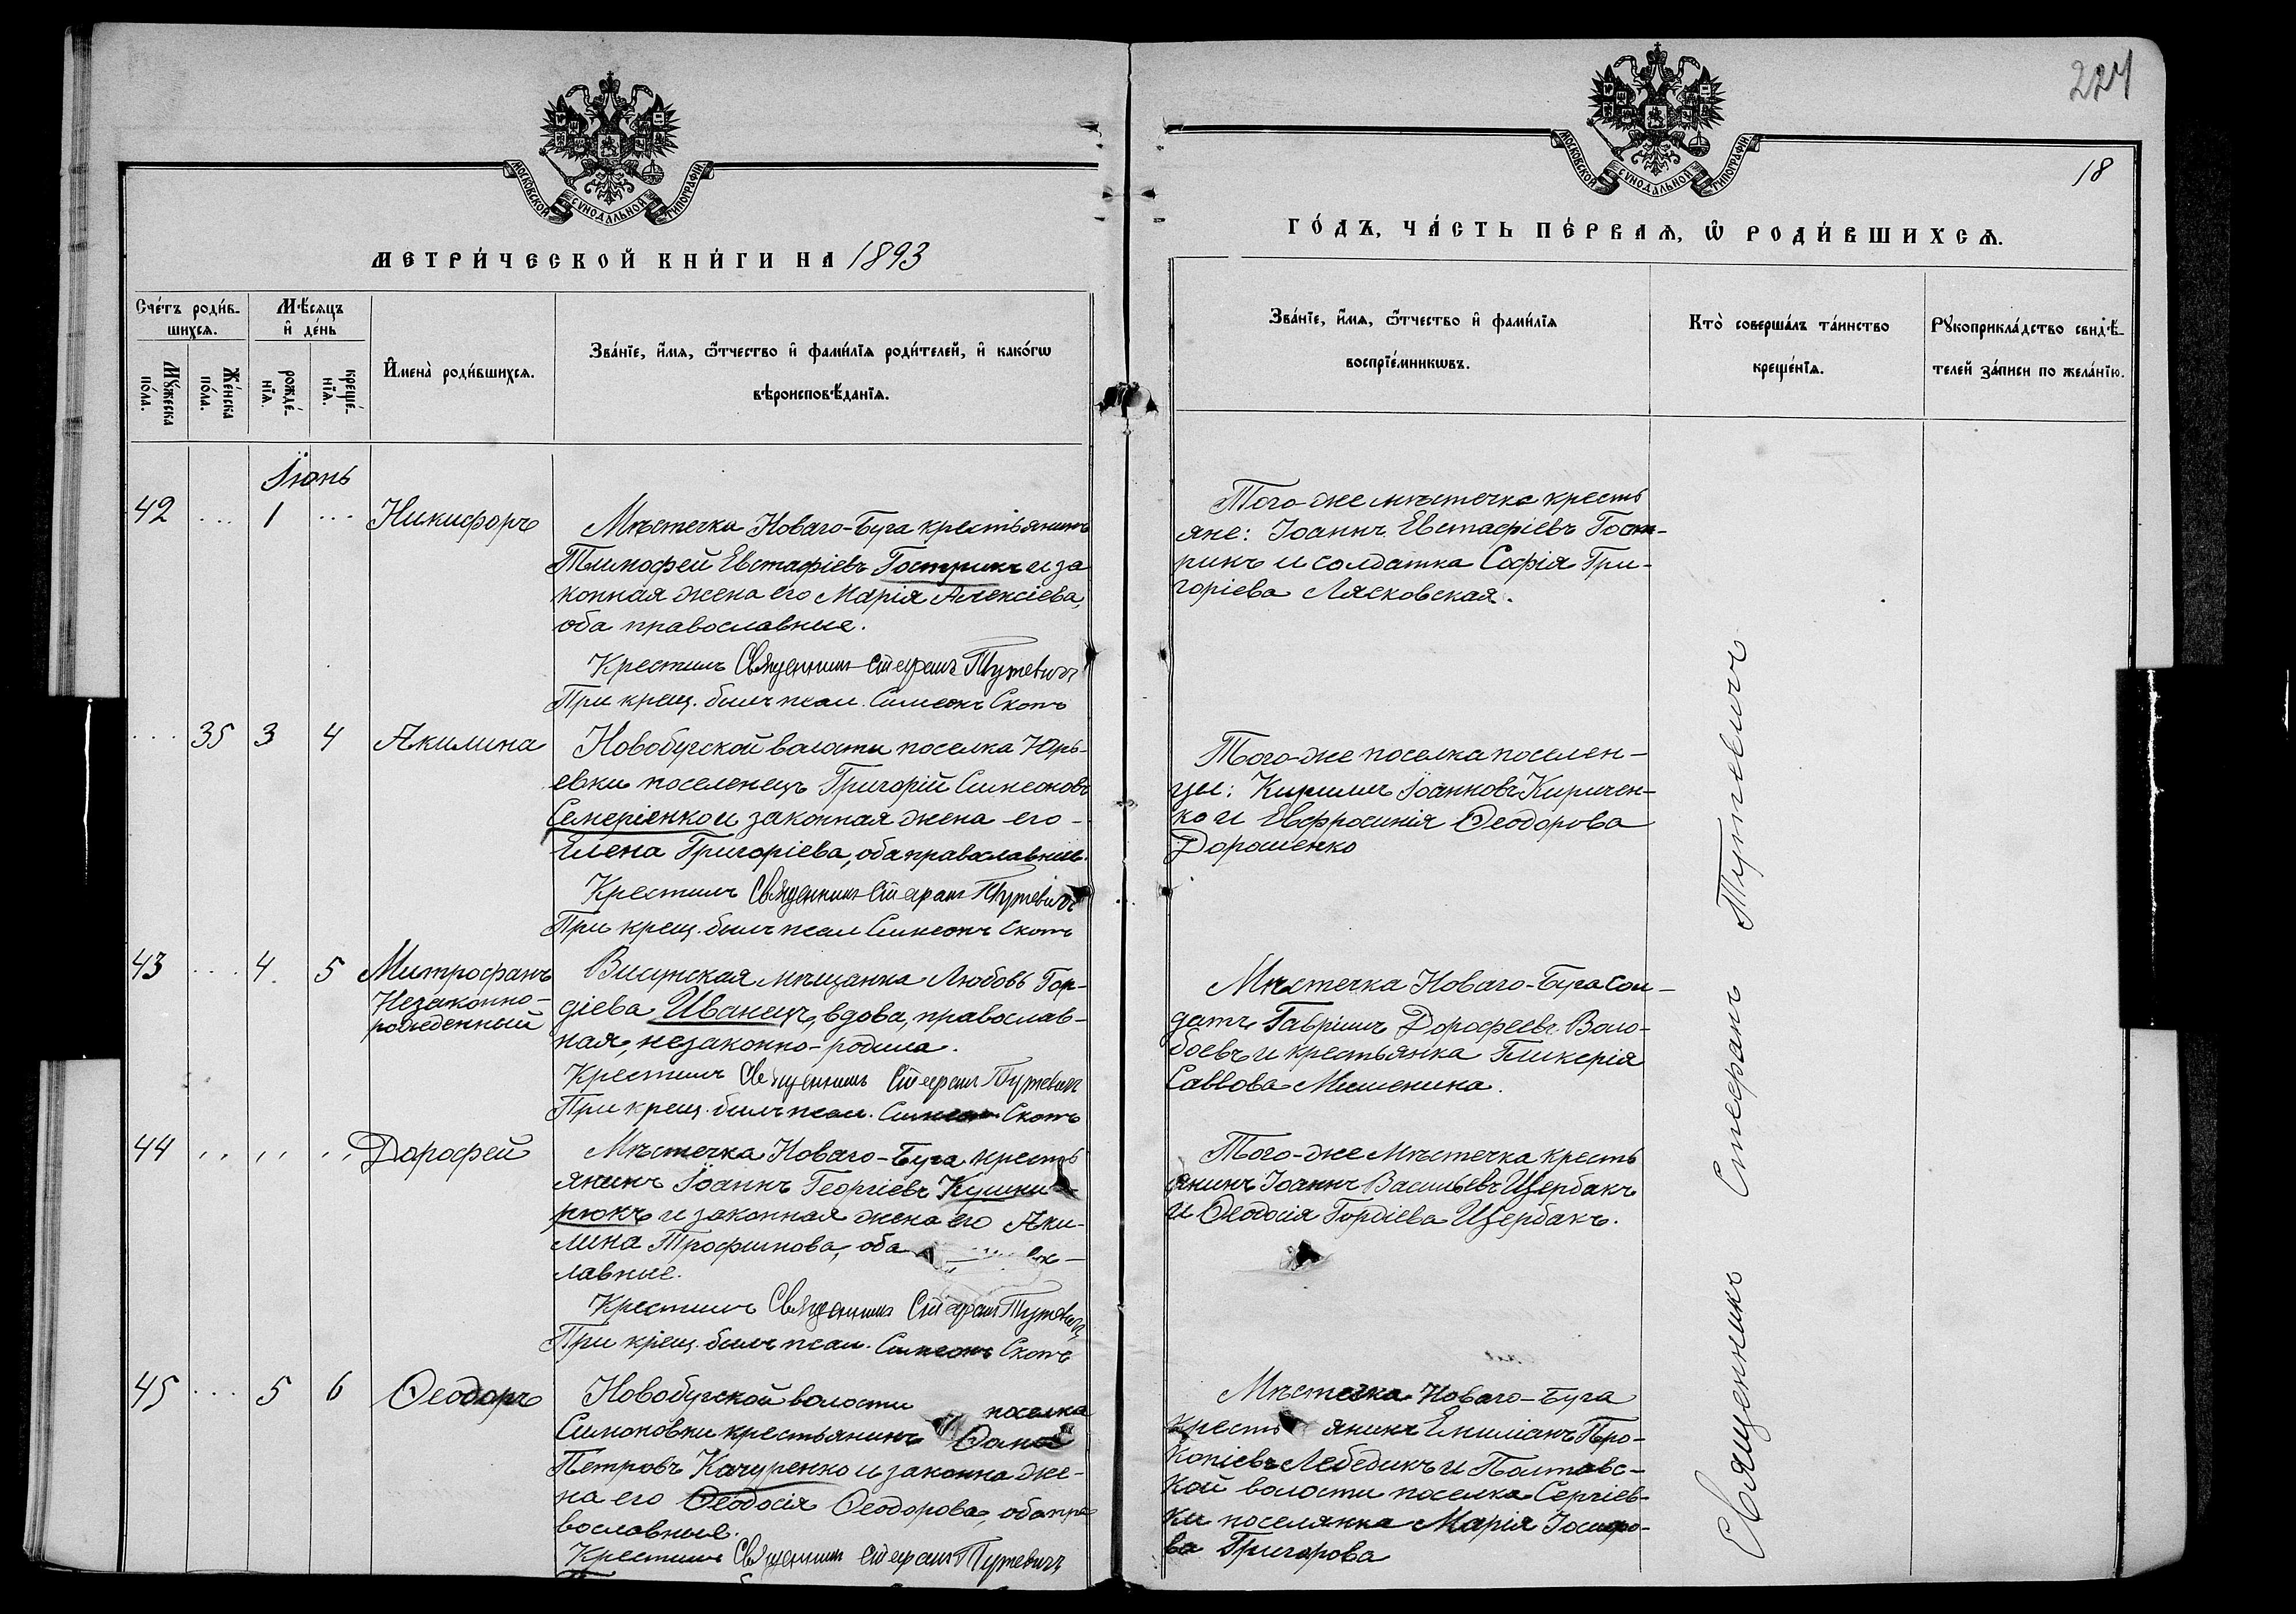 227
18
МОСКОВСКОЙ СѴНОДАЛЬНОЙ ТИПОГРАФІИ
МОСКОВСКОЙ СѴНОДАЛЬНОЙ ТИПОГРАФІИ
МЕТРИ́ЧЕСКОЙ КНИ́ГИ НА 1893
ГО́ДЪ, ЧА́СТЬ ПЕ́РВАЯ, Ѡ РОДИ́ВШИХСЯ.
Сче́тъ роди́в-
шихся.
Мꙋ́жеска
по́ла.
Же́нска
по́ла.
Мѣ́сяцъ
и҆ де́нь
рожде́-
нїя.
креще́-
нїя.
И҆мена̀ роди́вшихся.
Зва́нїе, и҆́мя, ѻ҆́тчество и҆ фами́лїя роди́телей, и҆ како́гѡ
вѣроисповѣ́данїя.
Зва́нїе, и҆́мя, ѻ҆́тчество и҆ фами́лїя
воспрїе́мникѡвъ.
Кто̀ соверша́лъ та́инство
креще́нїя.
Рꙋкоприкла́дство свидѣ́-
телей за́писи по жела́нїю.
Іюнь
42 ... 1 ... Никифоръ
Мѣстечка Новаго-Буга крестьянинъ
Тимофей Евстафіевъ Гострикъ и за
конная жена его Марія Алексіева,
оба православные.
Крестилъ Священникъ Стефанъ Тутевичъ
При крещ. былъ псал. Симеонъ Скотъ
Того-же мѣстечка кресть
яне: Іоаннъ Евстафіевъ Гост-
рикъ и солдатка Софія Гри-
горіева Лясковская.
... 35 3 4 Акилина
Новобугской волости поселка Юрь-
евки поселенецъ Григорій Симеоновъ
Семеріенко и законная жена его-
Елена Григоріева, оба православные.
Крестилъ Священникъ Стефанъ Тутевичъ
При крещ. былъ псал Симеонъ Скотъ
Того-же поселка поселен-
цы: Кириллъ Іоанновъ Киричен-
ко и Евфросинія Ѳеодорова
Дорошенко
43 ... 4. 5 Митрофанъ
Незаконно-
рожденный
Висунская мѣщанка Любовь Гор-
діева Иванецъ, вдова, православ-
ная, незаконно-родила.
Крестилъ Священникъ Стефанъ Тутевичъ
При крещ. былъ псал. Симеонъ Скотъ
Мѣстечка Новаго-Буга сол-
датъ Гавріилъ Дорофеевъ Воло-
боевъ и крестьянка Гликерія
Саввова Мишенина.
44 .. ,, ,, Дорофей
Мѣстечка Новаго-Буга кресть
янинъ Іоаннъ Георгіевъ Кушни-
рюкъ и законная жена его Аки-
лина Трофимова, оба
лавные.
Крестилъ Священникъ Стефанъ Тутевичъ
При крещ. былъ псал. Симеонъ Скотъ
Того-же Мѣстечка кресть
янинъ Іоаннъ Васильевъ Щербакъ
и Ѳеодосія Гордіева Щербакъ.
45 ... 5 6 Ѳеодоръ
Новобугской волости поселка
Симоновки крестьянинъ Ѳома
Петровъ Качуренко и законна же-
на его Ѳеодосія Ѳеодорова, оба пра
вославные.
Крестилъ Священникъ Стефанъ Тутевичъ
Мѣстечка Новаго-Буга
кресть янинъ Емиліанъ Про-
копіевъ Лебедикъ и Полтавс-
кой волости поселка Сергіев-
ки поселянка Марія Іосифо-
ва Григорова
Священникъ Стефанъ Тутевичъ